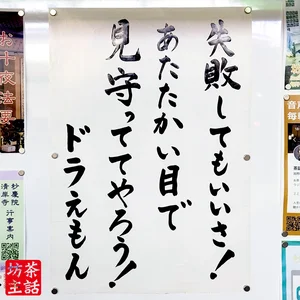 失敗してもいいさ！
あたたかい目で
見守っててやろう！
ドラえもん
お十夜法要
妙慶院
清岸寺
行事案内
坊主
茶話